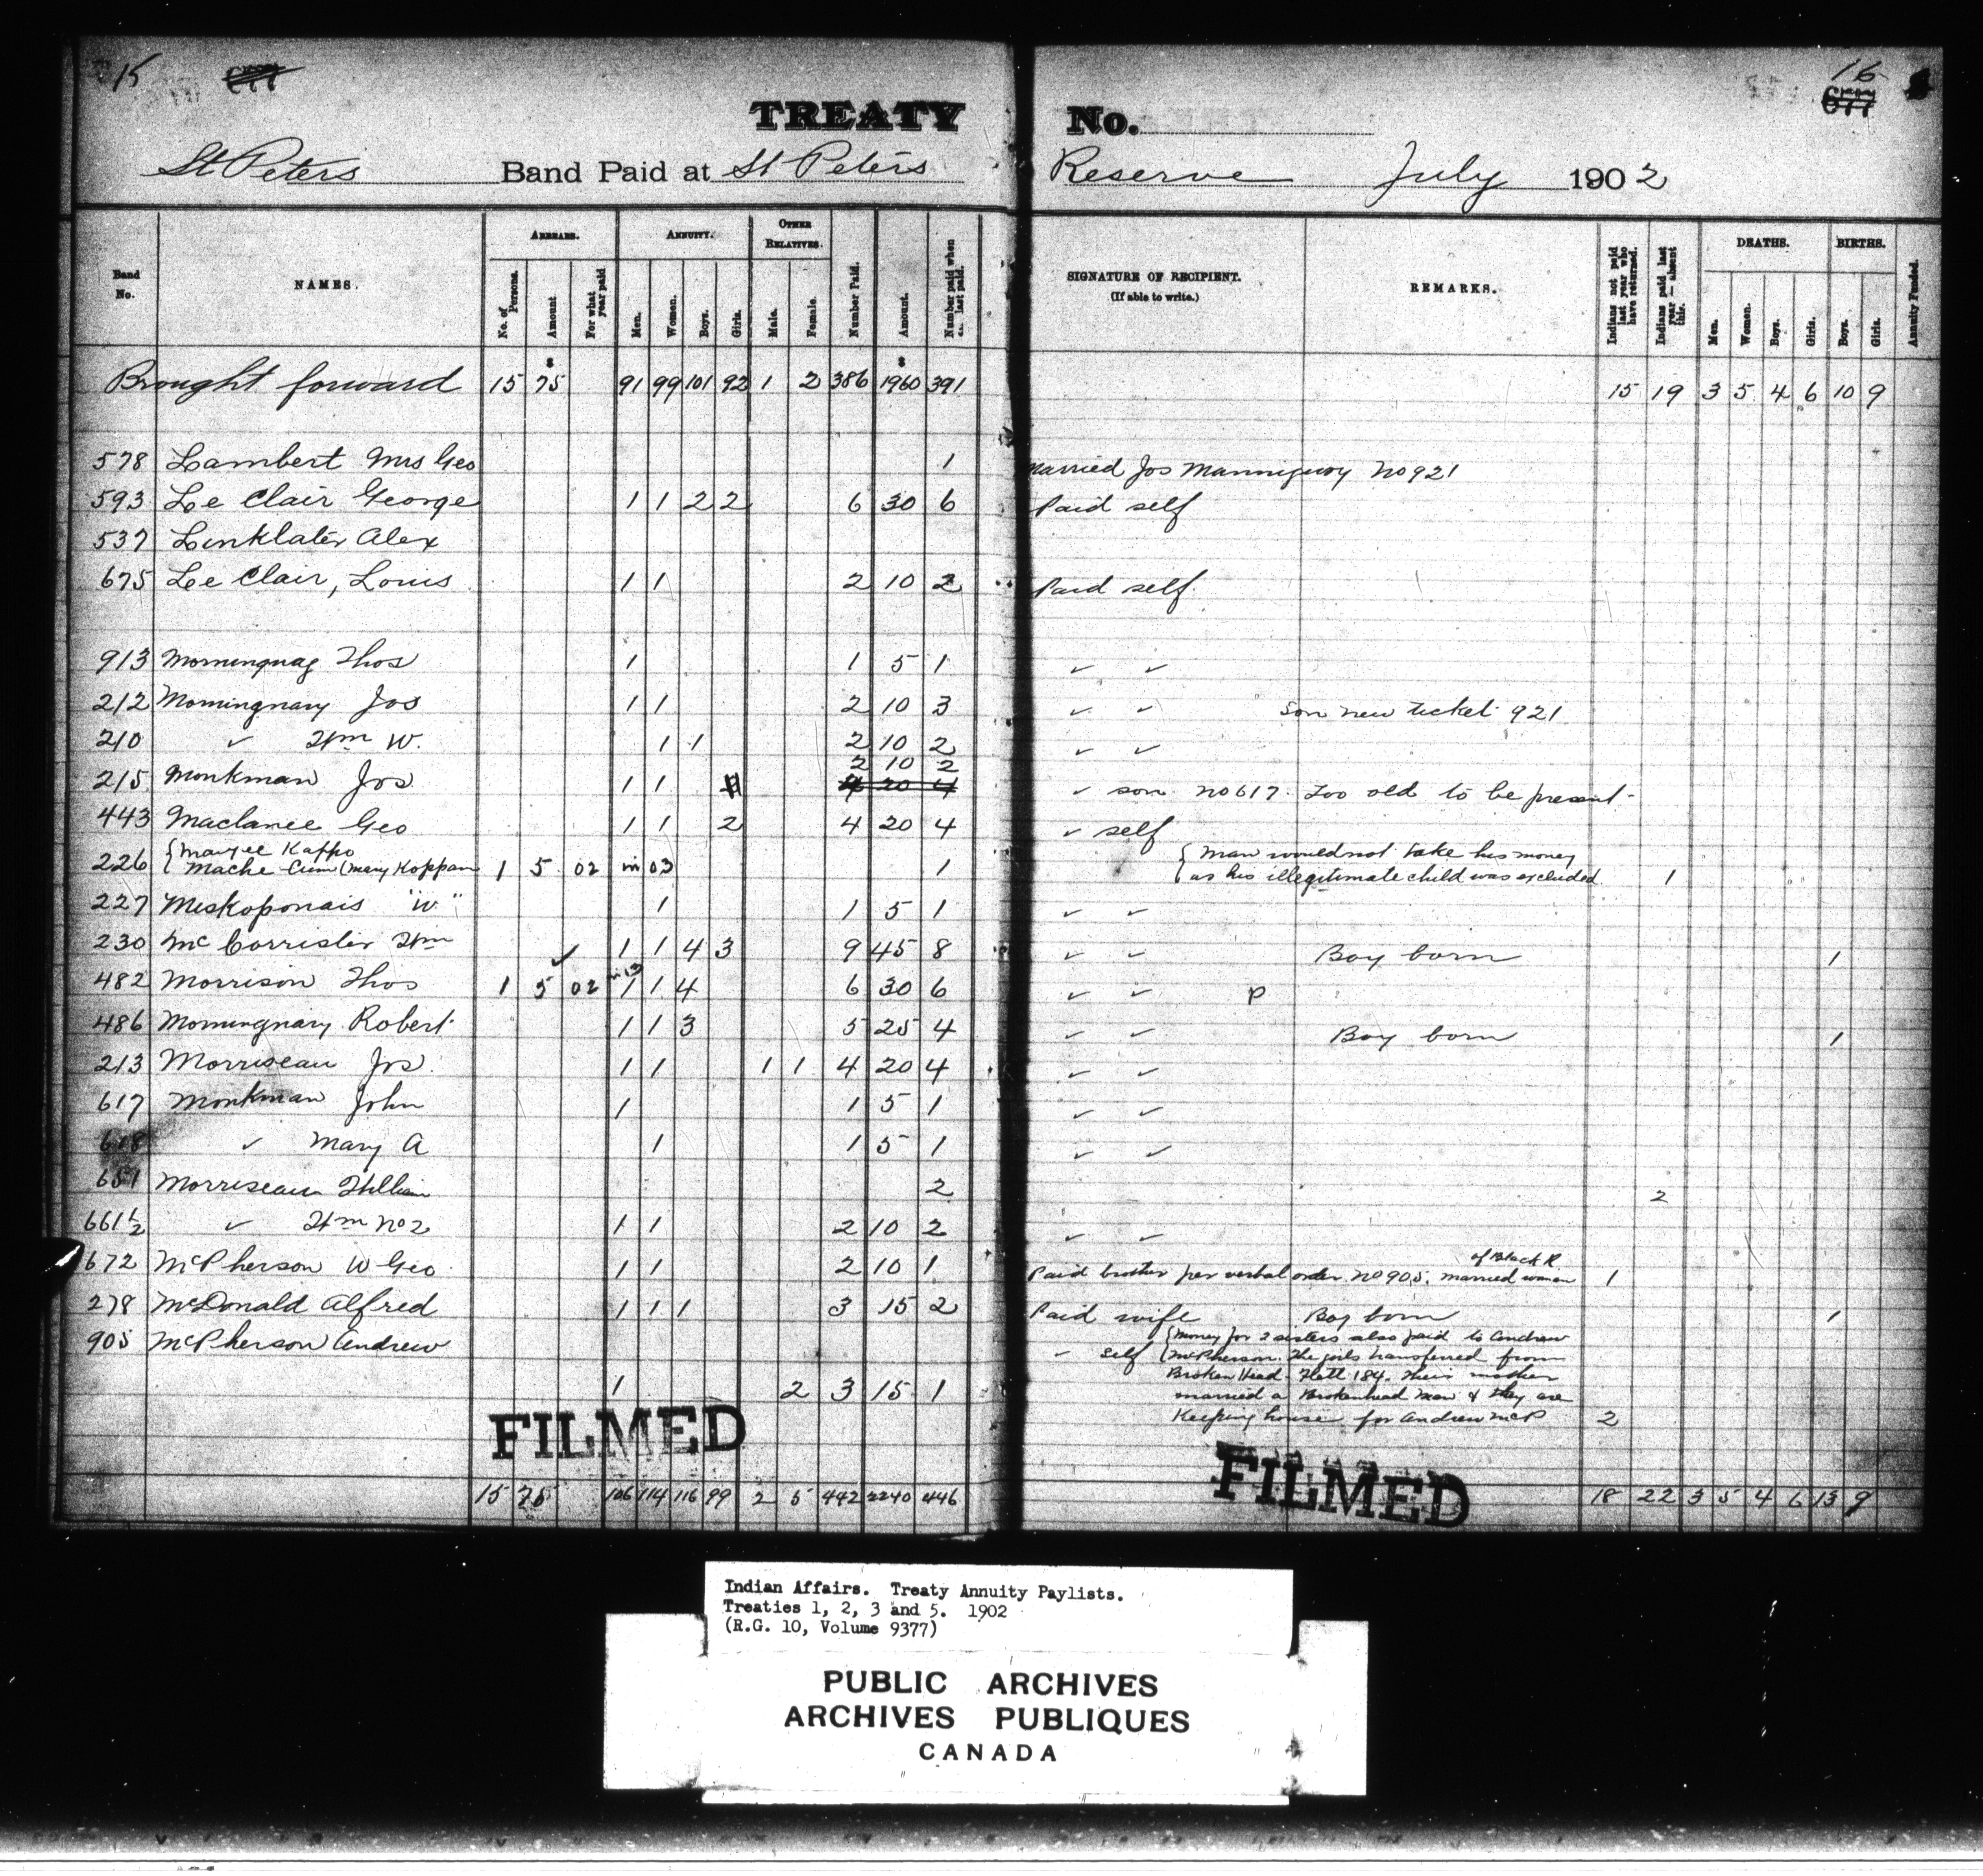 15 677
TREATY No.
16
677
St Peters Band Paid at St Peters Reserve July 1902
Band No. NAMES. ARREARS. No. of Persons. Amount For what year paid ANNUITY. Men. Women. Boys. Girls. OTHER RELATIVES. Male. Female. Number Paid. Amount. Number paid when last paid. SIGNATURE OF RECIPIENT. (If able to write.) REMARKS. Indians not paid last year who have returned. Indians paid last year—absent this. DEATHS. Men. Women. Boys. Girls. BIRTHS. Boys. Girls. Annuity Funded.
Brought forward 15 75 91 99 101 92 1 2 386 1960 391 15 19 3 5 4 6 10 9
578 Lambert Mrs Geo 1 Married Jos Manniguay No 921
593 Le Clair George 1 1 2 2 6 30 6 Paid self
537 Linklater Alex
675 Le Clair, Louis 1 1 2 10 2 Paid self
913 Morninguag Thos 1 1 5 1 ✓ ✓
212 Morningnary Jos 1 1 2 10 3 ✓ ✓ Son new ticket 921
210 ✓ Wm W. 1 1 2 10 2 ✓ ✓
2 10 2
215 Monkman Jos 1 1 4 20 4 ✓ son No 617. Too old to be present-
443 Maclanee Geo 1 1 2 4 20 4 ✓ self
226 { Mache Cum (Mary Koppan 1 5 02 in 03 1 { Man would not take his money
as his illegitimate child was excluded. 1
227 Meskoponais "W" 1 1 5 1 ✓ ✓
230 McCorrister Wm ✓ 1 1 4 3 9 45 8 ✓ ✓ Boy born 1
482 Morrison Thos 1 5 02 1 1 4 6 30 6 ✓ ✓ P
486 Morningnary Robert 1 1 3 5 25 4 ✓ ✓ Boy born 1
213 Morriseau Jos. 1 1 1 1 4 20 4 ✓ ✓
617 Monkman John 1 1 5 1 ✓ ✓
618 ✓ Mary A 1 1 5 1 ✓ ✓
651 Morriseau William 2 2
661½ ✓ Wm No 2 1 1 2 10 2 ✓ ✓
of Black R.
672 McPherson W Geo 1 1 2 10 1 Paid brother per verbal order. No 905. married woman 1
278 McDonald Alfred 1 1 1 3 15 2 Paid wife Boy born 1
905 McPherson Andrew ✓ self { Money for 2 sisters also paid to Andrew
McPherson. The girls transferred from
Broken Head Flett 184. Their mother
1 2 3 15 1 married a Brokenhead man & they are
Keeping house for Andrew McP 2
FILMED FILMED
15 75 106 114 116 99 2 5 442 2240 446 18 22 3 5 4 6 13 9
Indian Affairs. Treaty Annuity Paylists.
Treaties 1, 2, 3 and 5. 1902
(R.G. 10, Volume 9377)
PUBLIC ARCHIVES
ARCHIVES PUBLIQUES
CANADA